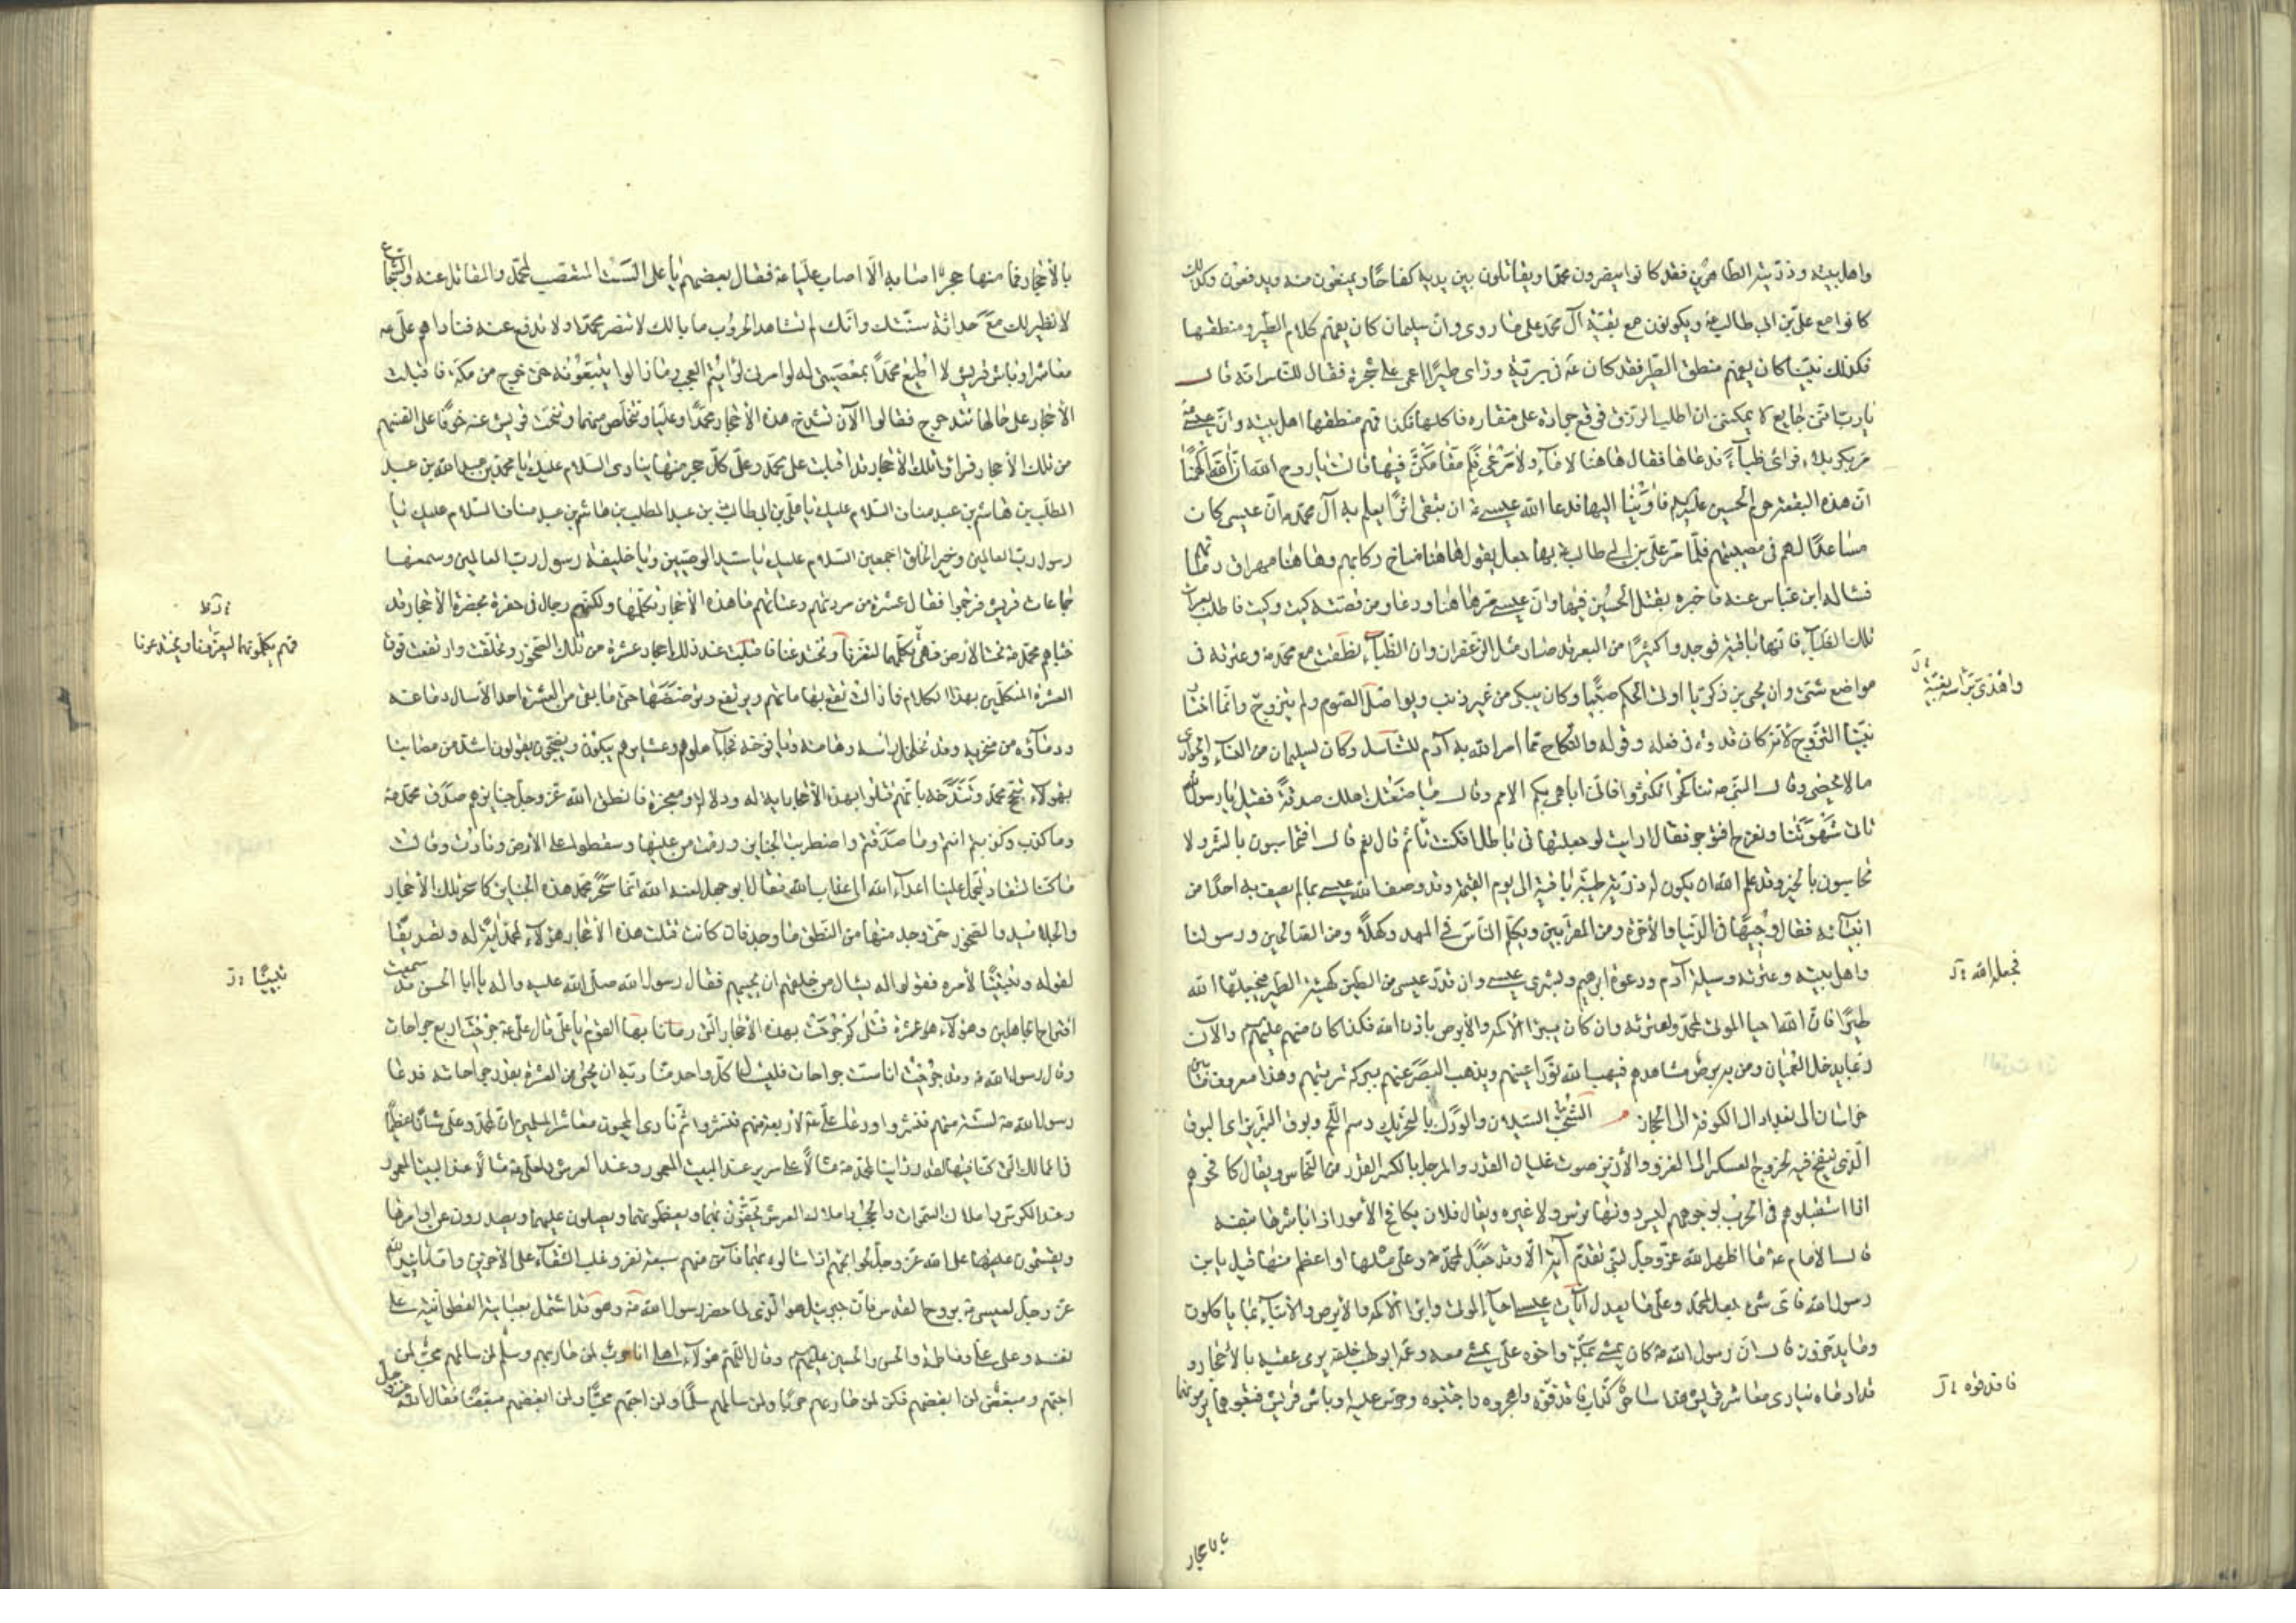 واهل بيته وذرّيته الطّاهرين فقد كانوا ينصرون محمّدا ويقاتلون بين يديه كفاحًا ويمنعون عنه ويدفعون وكذلك
كانوا مع عليّ بن ابي طالب ع ويكونون مع بقيّة آل محمّد على ما روي وانّ سليمان كان يفهم كلام الطّير ومنطقها
فكذلك نبيّنا كان يفهم منطق الطّير فقد كان ع في برّيّة ورأى طيرًا اعمى على شجرة فقال للنّاس انّه قال
يا ربّ انّني جايع لا يمكنني ان اطلب الرّزق فوقع جرادة على منقاره فاكلها فكذا فهم منطقها اهل بيته وانّ عيسى
مرّ بكربلاء فرأى ظباءً فدعاها فقال هاهنا لا ماء ولا مرعى فلم مقامكنّ فيها قالت يا روح الله انّ الله الهمنا
انّ هذه البقعة حرم الحسين عليه السلم فاوينا اليها فدعا الله عيسى ع ان يبقى اثرًا يعلم به آل محمّد انّ عيسى كان
مساعدًا لهم في مصيبتهم فلمّا مرّ عليّ بن ابي طالب ع بها جعل يقول هاهنا مناخ ركابهم وهاهنا مهراق دمائهم
فسأله ابن عبّاس عنه فاخبره بقتل الحسين فيها وانّ عيسى مرّ هاهنا ودعا ومن قصّته كيت وكيت فاطلب بعرات
تلك الظباء فانّها باقية فوجدوا كثيرًا من البعر قد صار مثل الزّعفران وانّ الظباء نطقت مع محمّد ص وعترته في
مواضع شتّى وان يحيى بن زكريّا اوتي الحكم صبيًّا وكان يبكي من غير ذنب ويواصل الصّوم ولم يتزوّج وانّما اختار
نبيّنا التّزوّج لانّه كان قدوة في فعله وقوله والنّكاح ممّا امر الله به آدم للتّناسل وكان لسليمان من النّساء والجواري
ما لا يحصى وقال النّبي ص تناكحوا تكثروا فانّي اباهي بكم الامم وقال مباضعتك اهلك صدقة فقيل يا رسول الله
نأتي شهوتنا ونفرح افنؤجر فقال ارايت لو جعلتها في باطل افكنت تأثم قال نعم قال افتحاسبون بالشّر ولا
تحاسبون بالخير وقد علم الله ان يكون له ذرّيّة طيّبة باقية الى يوم القيمة وقد وصف الله عيسى بما لم يصف به احدًا من
انبيائه فقال وجيهًا في الدّنيا والآخرة ومن المقرّبين ويكلّم النّاس في المهد وكهلًا ومن الصّالحين ورسولنا
واهل بيته وعترته وسيلة آدم ودعوة ابرهيم وبشرى عيسى وان قدّر عيسى من الطّين كهيئة الطّير فيجعلها الله
طيرًا فانّ الله احيا الموتى لمحمّد ولعترته وان كان يبرئ الاكمه والابرص باذن الله فكذا كان منهم عليهم السلم والآن
ربّما يدخل العميان ومن به برص مشاهدهم فيهب الله نور اعينهم ويذهب البرص عنهم ببركة تربتهم وهذا معروف ما بين
خراسان الى بغداد الى الكوفة الى الحجاز السّيلان والودك بالتّحريك دسم اللّحم وبوق التّبريز اي البوق
الّذي ينفخ فيه لخروج العسكر الى الغزو والأزيز صوت غليان القدر والمرجل بالكسر القدر من النّحاس ويقال كافحوهم
اذا استقبلوهم في الحرب لوجوههم ليس دونها ترس ولا غيره ويقال فلان يكافح الأمور اذا باشرها بنفسه
قال الأمام ع ما اظهر الله عزّ وجلّ لنبي تقدّم آية الّا وقد جعل لمحمّد ص وعلي مثلها او اعظم منها قيل يا ابن
رسول الله فاي شيء جعل لمحمّد وعلي ما يعدل آيات عيسى احياء الموتى وابراء الاكمه والأبرص والأنباء بما ياكلون
وما يدّخرون قال انّ رسول الله ص كان يمشي بمكّة واخوه عليّ يمشي معه وعمّه ابو لهب خلفه يرمي عقبه بالأحجار و
قد ادماه ينادي معاشر قريش هذا ساحر كذّاب فاقذفوه واهجروه واجتنبوه وحرّش عليه اوباش قريش فتبعوهما يرمونهما
واهذى بتراسه بقيّة
فجعل الله ؛ ل
فاقذفوه ؛ ل
بالأحجار
بالأحجار فما منها حجر اصابه الّا اصاب عليّا ع فقال بعضهم يا علي الست المتعصّب لمحمّد والمقاتل عنه والشجاع
لا نظير لك مع حداثة سنّك وانّك لم تشاهد الحروب ما بالك لا تنصر محمّدا ولا تدفع عنه فناداهم عليّ ع
معاشر اوباش قريش لا اطيع محمّدًا بمعصيتي له لو امرني لرأيتم العجب وما زالوا يتبعونه حتى خرج من مكّة فاقبلت
الأحجار على حالها تتدحرج فقالوا الآن تشدخ هذه الأحجار محمّدًا وعليّا ونتخلّص منهما وتنحّت قريش عنه خوفًا على انفسهم
من تلك الأحجار فرأوا تلك الأحجار قد اقبلت على محمّد وعليّ كلّ حجر منها ينادي السّلام عليك يا محمّد بن عبد الله بن عبد
المطّلب بن هاشم بن عبد مناف السّلام عليك يا علي بن ابي طالب بن عبد المطلب بن هاشم بن عبد مناف السّلام عليك يا
رسول ربّ العالمين وخير الخلق اجمعين السّلام عليك يا سيّد الوصيّين ويا خليفة رسول ربّ العالمين وسمعها
جماعات قريش فوجموا فقال عشرة من مردتهم وعتاتهم ما هذه الأحجار تكلّمها ولكنّهم رجال في حفرة بحضرة الأحجار قد
خبأهم محمّد ص تحت الأرض فهي تكلّمهما لتغرنا وتختدعنا فاقبلت عند ذلك احجار عشرة من تلك الصّخور وتحلّقت وارتفعت فوق
العشرة المتكلّمين بهذا الكلام فما زالت تقع بهاماتهم وترتفع وترضّضها حتّى ما بقي من العشرة احد الّا سال دماغه
ودماؤه من منخريه وقد تخلخل رأسه وهامته ويافوخه فجاء اهلوهم وعشايرهم يبكون ويضجّون يقولون اشدّ من مصابنا
بهؤلاء تبجّح محمّد وتبذّخه بأنّهم قتلوا بهذه الأحجار آية له ودلالة ومعجزة فانطق الله عزّ وجلّ جنايزهم صدق محمّد ص
وما كذب وكذبتم انتم وما صدقتم واضطربت الجنايز ورمت من عليها وسقطوا على الأرض ونادت وقالت
ما كنّا لننقاد ليحمل علينا اعداء الله الى عذاب الله فقال ابو جهل لعنه الله انّما سحر محمّد هذه الجنايز كما سحر تلك الأحجار
والجلاميد والصّخور حتّى وجد منها من النّطق ما وجد فان كانت قتلت هذه الأحجار هؤلاء لمحمّد آية له وتصديقًا
لقوله وتثبيتًا لأمره فقولوا له يسأل من خلقهم ان يحييهم فقال رسول الله صلى الله عليه واله يا ابا الحسن قد سمعت
اقتراح الجاهلين وهؤلاء عشرة قتلى كم جرحت بهذه الأحجار الّتي رمانا بها القوم يا علي قال علي ع جرحت اربع جراحات
وقال رسول الله ص وقد جرحت انا ست جراحات فليسأل كلّ واحد منّا ربّه ان يحيي من العشرة بقدر جراحاته فدعا
رسول الله ص لستّة منهم فنشروا ودعا علي ع لاربعة منهم فنشروا ثم نادى المحيون معاشر المسلمين انّ لمحمّد وعلي شأنًا عظيمًا
في الممالك الّتي كنّا فيها لقد رأينا لمحمّد ص مثالًا على سرير عند البيت المعمور وعند العرش ولعلي ع مثالًا عند البيت المعمور
وعند الكرسي واملاك السّموات والحجب واملاك العرش يحفّون بهما ويعظّمونهما ويصلّون عليهما ويصدرون عن اوامرهما
ويقسمون بهما على الله عزّ وجلّ لحوائجهم اذا سألوه بهما فآمن منهم سبعة نفر وغلب الشّقاء على الآخرين وامّا تأييد الله
عزّ وجلّ لعيسى ع بروح القدس فانّ جبرئيل هو الّذي لمّا حضر رسول الله ص وهو قد اشتمل بعباءته القطوانيّة على
نفسه وعلى علي وفاطمة والحسن والحسين عليهم السلم وقال اللّهمّ هؤلاء اهلي انا حرب لمن حاربهم وسلم لمن سالمهم محبّ لمن
احبّهم ومبغض لمن ابغضهم فكن لمن حاربهم حربًا ولمن سالمهم سلمًا ولمن احبّهم محبًّا ولمن ابغضهم مبغضًا فقال الله عزّ وجلّ
فهم يكلّمونهما ليغرّونا ويختدعونا
تثبيتًا ؛ ل